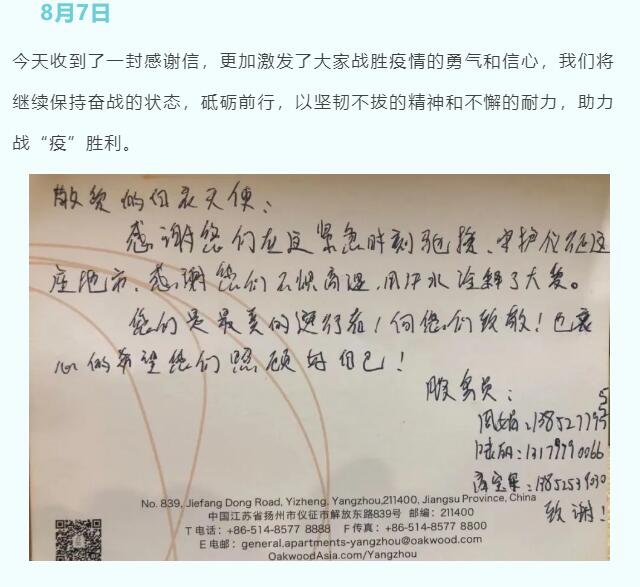 8月7日
今天收到了一封感谢信，更加激发了大家战胜疫情的勇气和信心，我们将
继续保持奋战的状态，砥砺前行，以坚韧不拔的精神和不懈的耐力，助力
战“疫”胜利。
敬爱的白衣天使：
感谢您们在这紧急时刻驰援、守护仪征这
座地市，感谢您们不惧高温，用汗水诠释了大爱。
您们是最美的逆行者！向您们致敬！也衷
心的希望您们照顾好自己！
服务员：
致谢！
No. 839, Jiefang Dong Road, Yizheng, Yangzhou,211400, Jiangsu Province, China
中国江苏省扬州市仪征市解放东路839号 邮编：211400
T 电话：+86-514-8577 8888 F 传真：+86-514-8577 8800
E 电邮：general.apartments-yangzhou@oakwood.com
OakwoodAsia.com/Yangzhou